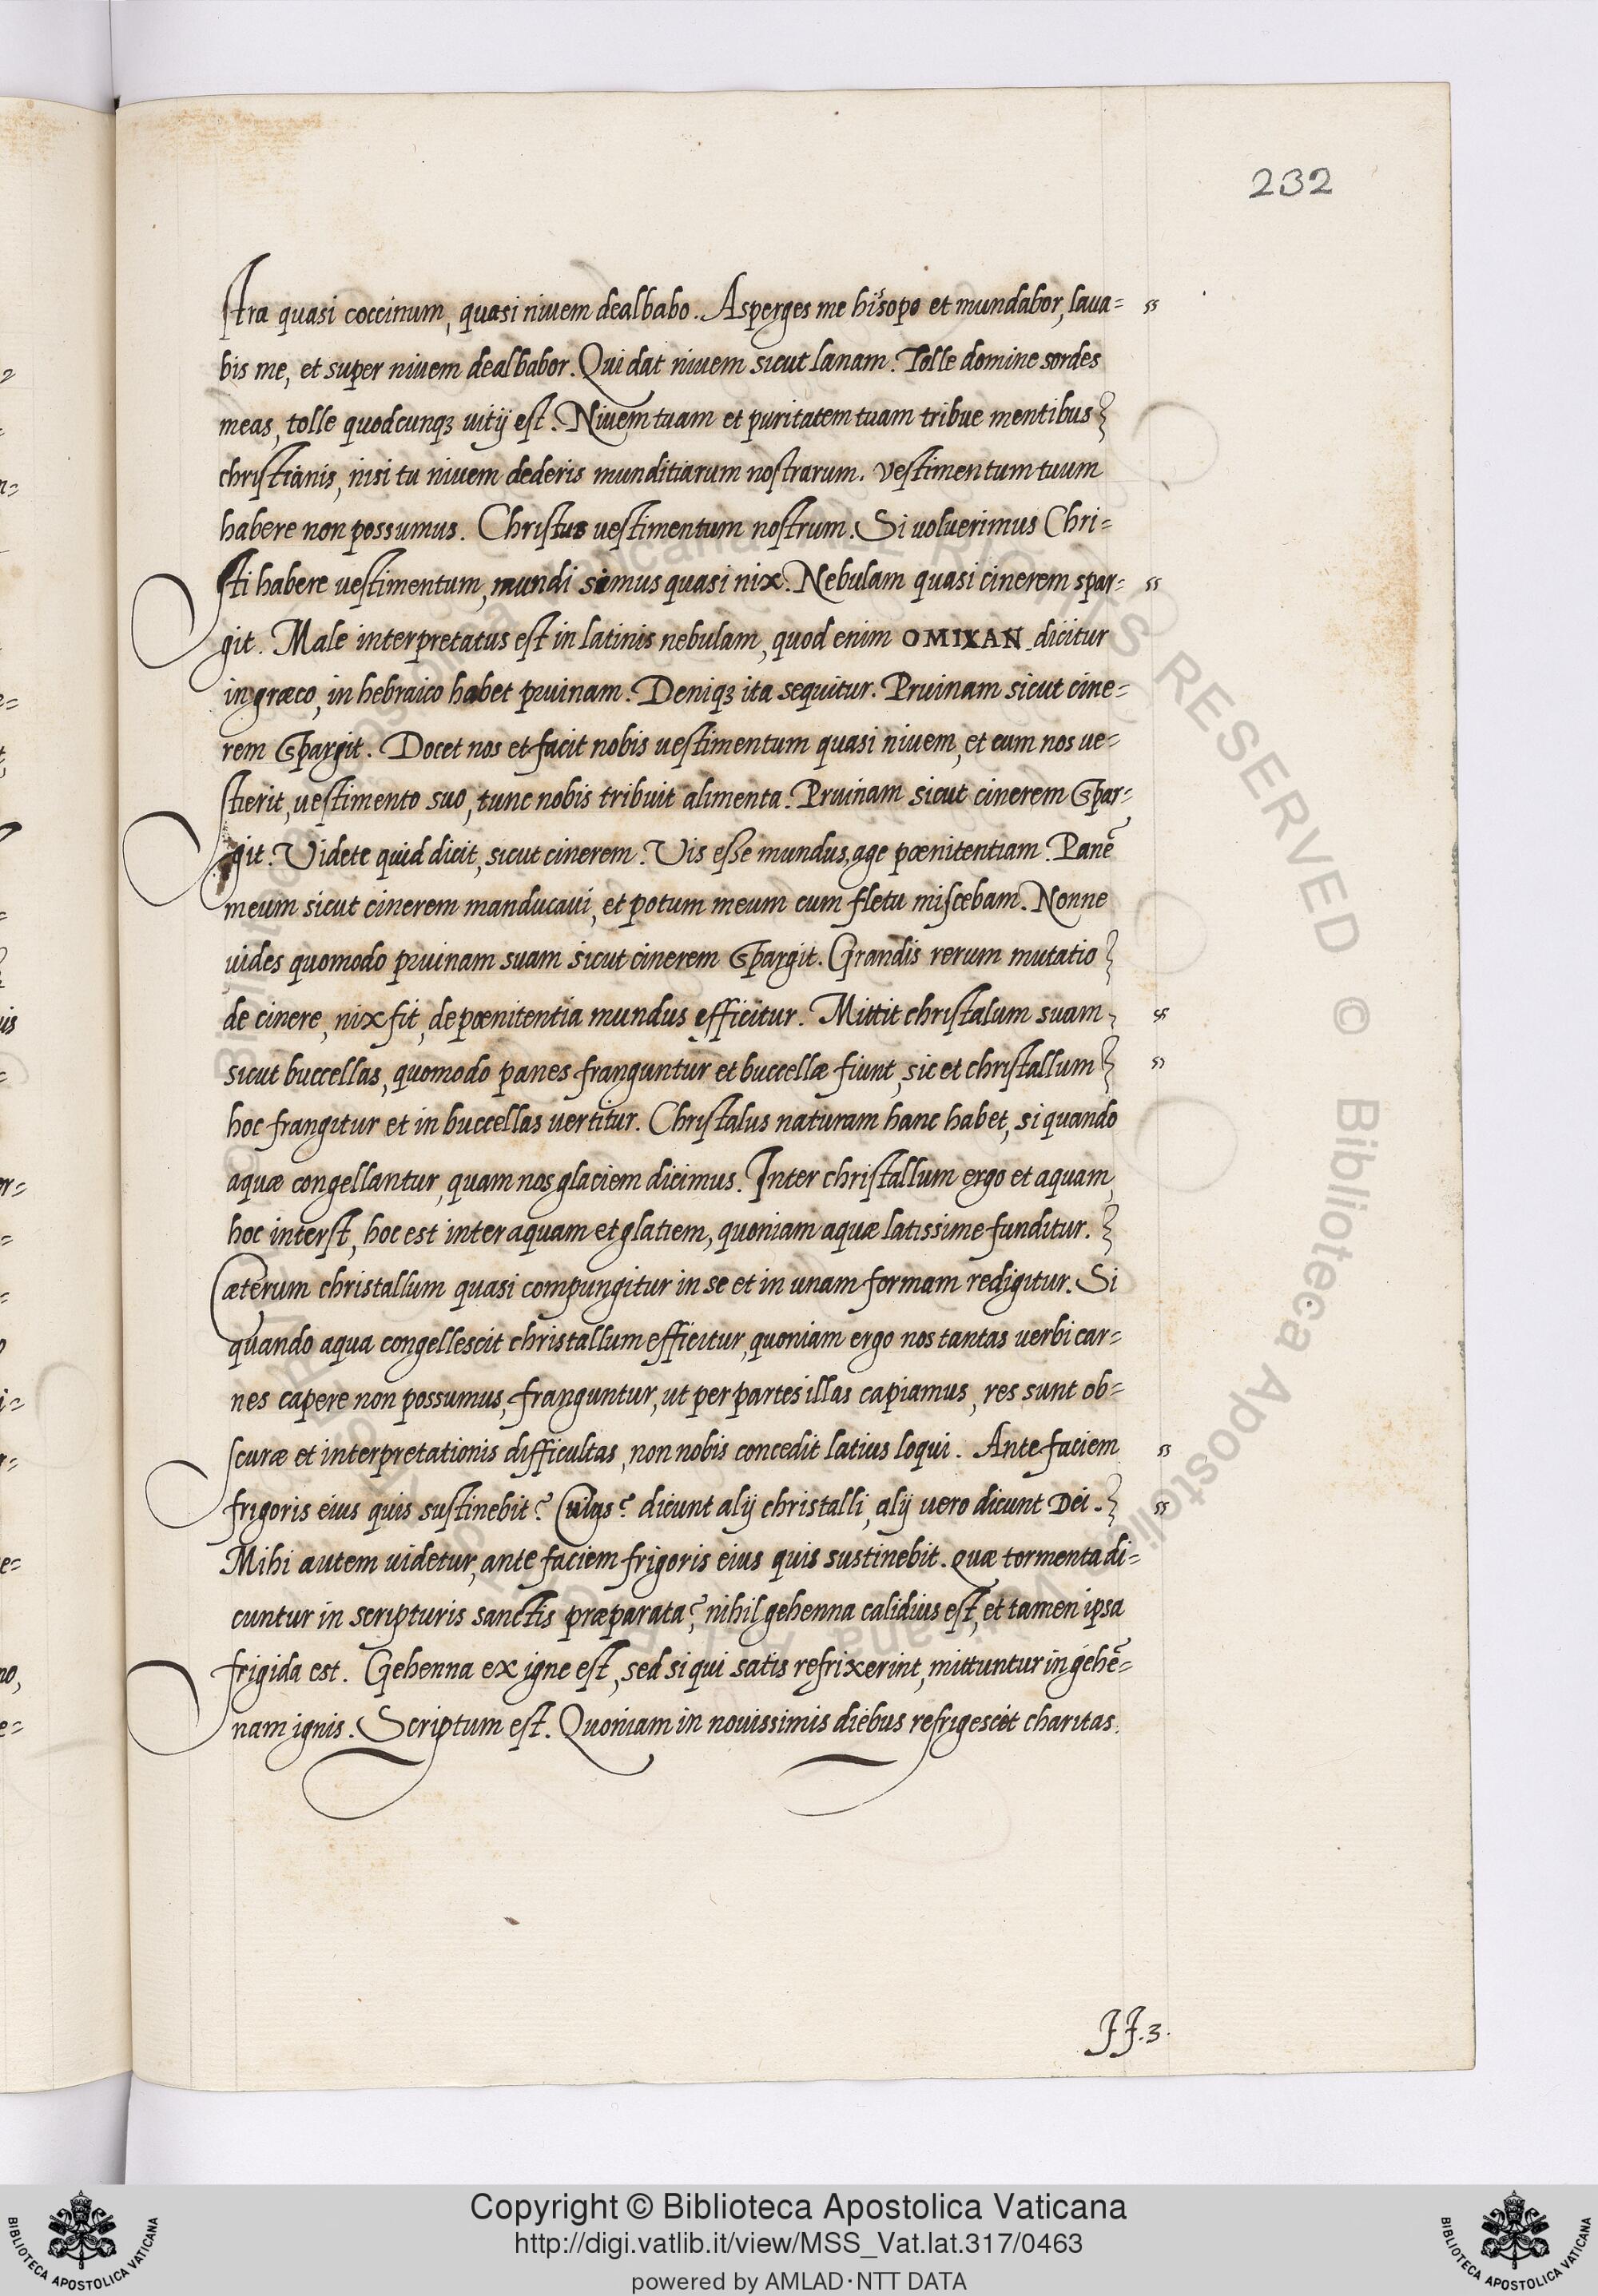 232
stra quasi coccinum, quasi niuem dealbabo. Asperges me hisopo et mundabor, laua=
bis me, et super niuem dealbabor. Qui dat niuem sicut lanam. Tolle domine sordes
meas, tolle quodcunqꝫ uitij est. Niuem tuam et puritatem tuam tribue mentibus
christianis, nisi tu niuem dederis munditiarum nostrarum. vestimentum tuum
habere non possumus. Christus uestimentum nostrum. Si uoluerimus Chri=
sti habere uestimentum, mundi simus quasi nix. Nebulam quasi cinerem spar=
git. Male interpretatus est in latinis nebulam, quod enim OMIXAN dicitur
in græco, in hebraico habet pruinam. Deniqꝫ ita sequitur. Pruinam sicut cine=
rem spargit. Docet nos et facit nobis uestimentum quasi niuem, et cum nos ue=
stierit, uestimento suo, tunc nobis tribuit alimenta. Pruinam sicut cinerem spar=
git. Videte quid dicit, sicut cinerem. Vis esse mundus, age pœnitentiam. Panē
meum sicut cinerem manducaui, et potum meum cum fletu miscebam. Nonne
uides quomodo pruinam suam sicut cinerem spargit. Grandis rerum mutatio
de cinere, nix fit, de pœnitentia mundus efficitur. Mittit christalum suam
sicut buccellas, quomodo panes franguntur et buccellæ fiunt, sic et christallum
hoc frangitur et in buccellas uertitur. Christalus naturam hanc habet, si quando
aquæ congellantur, quam nos glaciem dicimus. Inter christallum ergo et aquam,
hoc interst, hoc est inter aquam et glatiem, quoniam aquæ latissime funditur.
Cæterum christallum quasi compungitur in se et in unam formam redigitur. Si
quando aqua congellescit christallum efficitur, quoniam ergo nos tantas uerbi car=
nes capere non possumus, franguntur, ut per partes illas capiamus, res sunt ob=
scuræ et interpretationis difficultas, non nobis concedit latius loqui. Ante faciem
frigoris eius quis sustinebit? Cuius? dicunt alij christalli, alij uero dicunt Dei.
Mihi autem uidetur, ante faciem frigoris eius quis sustinebit. Quæ tormenta di=
cuntur in scripturis sanctis præparata? nihil gehenna calidius est, et tamen ipsa
frigida est. Gehenna ex igne est, sed si qui satis refrixerint, mittuntur in gehē=
nam ignis. Scriptum est. Quoniam in nouissimis diebus refrigescet charitas.
JJ.3.
Copyright © Biblioteca Apostolica Vaticana
http://digi.vatlib.it/view/MSS_Vat.lat.317/0463
powered by AMLAD·NTT DATA